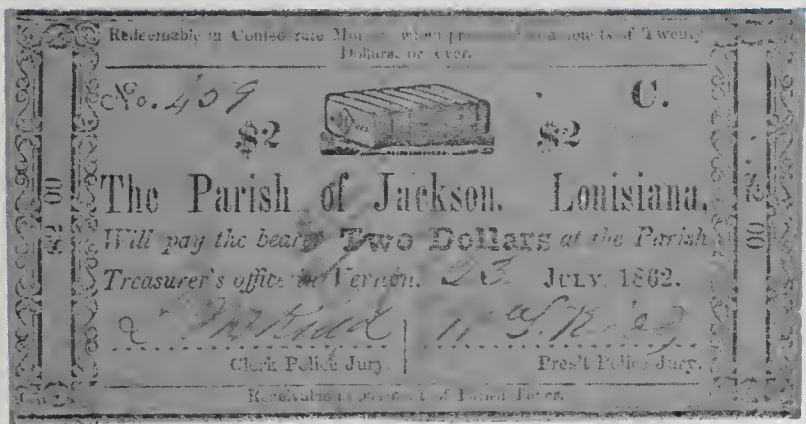 Redeemable in Confederate Money when presented in amounts of Twenty
Dollars, or over.
No. 409 C.
$2 $2
The Parish of Jackson, Louisiana,
Will pay the bearer Two Dollars at the Parish
Treasurer's office in Vernon. 23 JULY, 1862.
Clerk Police Jury. Pres't Police Jury.
Receivable in payment of Parish Taxes.